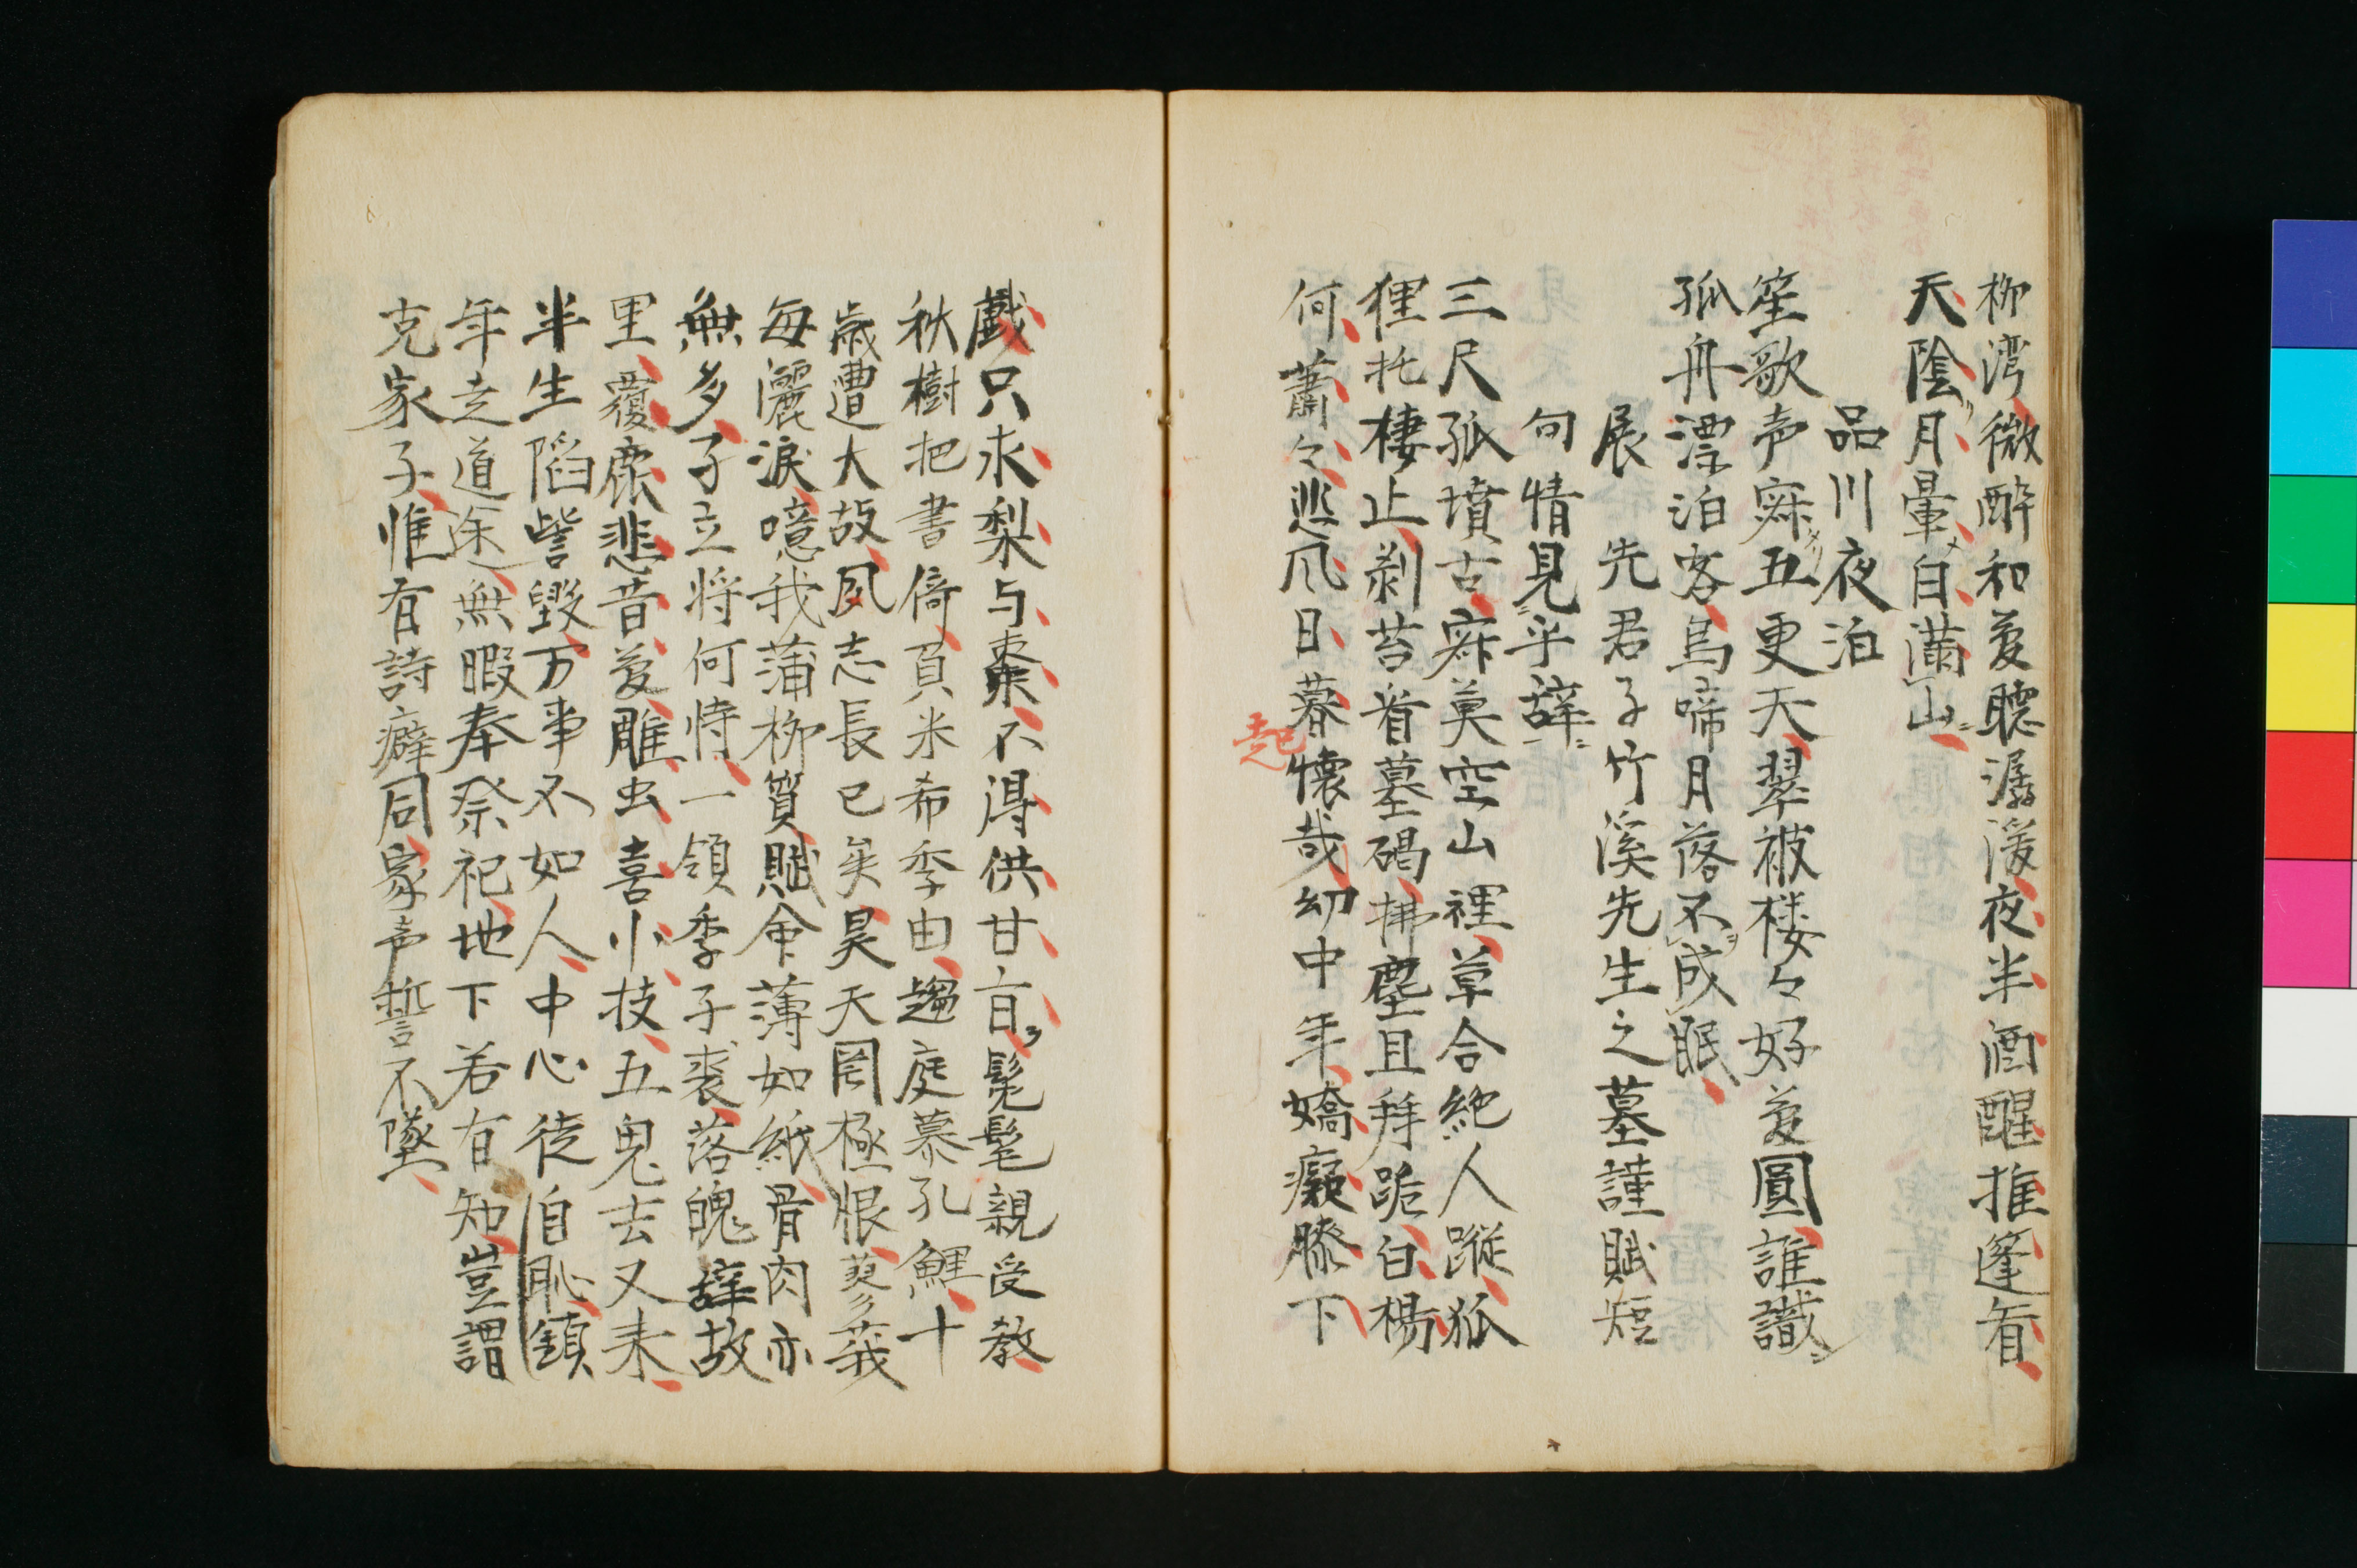 柳湾微酔和夢聴潺湲夜半酒醒推篷看
天陰月暈白満山
品川夜泊
笙歌声寐五更天翠被楼々好夢圓誰識
孤舟漂泊客烏啼月落不成眠
展　先君子竹溪先生之墓謹賦短
句情見乎辞
三尺孤墳古寐莫空山裡草合絶人蹤狐
狸托棲止剥苔看墓碣拂塵且拜跪白楊
何蕭々悲凨日暮懐哉幼中年嬌癡膝下
起
戯只求梨与棗不得供甘旨髦髦親受教
秋樹把書倚負米希季由趨庭慕孔鯉十
歳遭大故夙志長已矣昊天罔極恨蓼莪
毎灑涙噫我蒲柳質賦命薄如紙骨肉亦
無多孑立将何恃一領季子裘落魄辞故
里覆鹿悲昔夢雕虫喜小技五鬼去又来
半生陷訾毀万事不如人中心徒自恥鎮
年走道途無暇奉祭祀地下若有知豈謂
克家子惟有詩癖同家声誓不墜